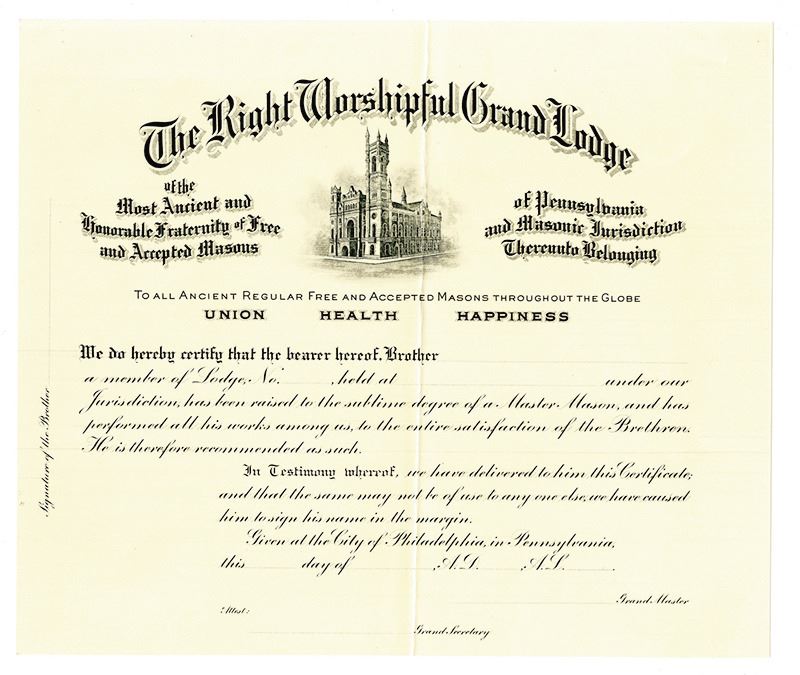 The Right Worshipful Grand Lodge
of the
Most Ancient and
Honorable Fraternity of Free
and Accepted Masons
of Pennsylvania
and Masonic Jurisdiction
Thereunto Belonging
TO ALL ANCIENT REGULAR FREE AND ACCEPTED MASONS THROUGHOUT THE GLOBE
UNION HEALTH HAPPINESS
We do hereby certify that the bearer hereof, Brother
a member of Lodge, No. , held at under our
Jurisdiction, has been raised to the sublime degree of a Master Mason, and has
performed all his works among us, to the entire satisfaction of the Brethren.
He is therefore recommended as such.
In Testimony whereof, we have delivered to him this Certificate;
and that the same may not be of use to any one else, we have caused
him to sign his name in the margin.
Given at the City of Philadelphia, in Pennsylvania,
this day of , A.D. , A.L. .
Grand Master
Attest:
Grand Secretary
Signature of the Brother